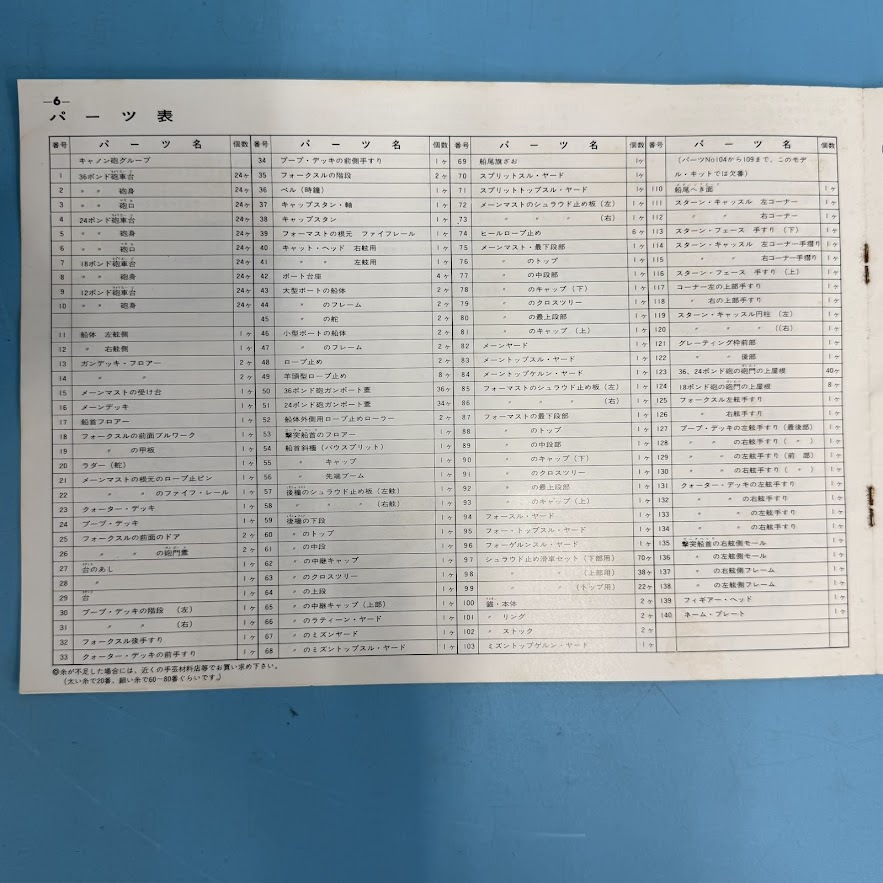 —6—
パーツ表
番号 パーツ名 個数
キャノン砲グループ
1 36ポンド砲車台 24ヶ
2 〃 〃 砲身 24ヶ
3 〃 〃 砲口 24ヶ
4 24ポンド砲車台 24ヶ
5 〃 〃 砲身 24ヶ
6 〃 〃 砲口 24ヶ
7 18ポンド砲車台 24ヶ
8 〃 〃 砲身 24ヶ
9 12ポンド砲車台 24ヶ
10 〃 〃 砲身 24ヶ
11 船体 左舷側 1ヶ
12 〃 右舷側 1ヶ
13 ガンデッキ・フロアー 2ヶ
14 〃 〃 2ヶ
15 メーンマストの受け台 1ヶ
16 メーンデッキ 1ヶ
17 船首フロアー 1ヶ
18 フォークスルの前面ブルワーク 1ヶ
19 〃 の甲板 1ヶ
20 ラダー(舵) 1ヶ
21 メーンマストの根元のロープ止ピン 1ヶ
22 〃 〃 のファイフ・レール 1ヶ
23 クォーター・デッキ 1ヶ
24 プープ・デッキ 1ヶ
25 フォークスルの前面のドア 2ヶ
26 〃 〃 の砲門蓋 2ヶ
27 台のあし 1ヶ
28 〃 1ヶ
29 台 1ヶ
30 プープ・デッキの階段 (左) 1ヶ
31 〃 〃 (右) 1ヶ
32 フォークスル後手すり 1ヶ
33 クォーター・デッキの前手すり 1ヶ
番号 パーツ名 個数
34 プープ・デッキの前側手すり 1ヶ
35 フォークスルの階段 2ヶ
36 ベル(時鐘) 1ヶ
37 キャップスタン・軸 1ヶ
38 キャップスタン 1ヶ
39 フォーマストの根元 ファイフレール 1ヶ
40 キャット・ヘッド 右舷用 1ヶ
41 〃 〃 左舷用 1ヶ
42 ボート台座 4ヶ
43 大型ボートの船体 2ヶ
44 〃 のフレーム 2ヶ
45 〃 の舵 2ヶ
46 小型ボートの船体 2ヶ
47 〃 のフレーム 2ヶ
48 ロープ止め 2ヶ
49 羊頭型ロープ止め 8ヶ
50 36ポンド砲ガンポート蓋 36ヶ
51 24ポンド砲ガンポート蓋 34ヶ
52 船体外側用ロープ止めローラー 2ヶ
53 撃突船首のフロアー 1ヶ
54 船首斜檣(バウスプリット) 1ヶ
55 〃 キャップ 1ヶ
56 〃 先端ブーム 1ヶ
57 後檣のシュラウド止め板(左舷) 1ヶ
58 〃 〃 〃 (右舷) 1ヶ
59 後檣の下段 1ヶ
60 〃 のトップ 1ヶ
61 〃 の中段 1ヶ
62 〃 の中継キャップ 1ヶ
63 〃 のクロスツリー 1ヶ
64 〃 の上段 1ヶ
65 〃 の中継キャップ(上部) 1ヶ
66 〃 のラティーン・ヤード 1ヶ
67 〃 のミズンヤード 1ヶ
68 〃 のミズントップスル・ヤード 1ヶ
番号 パーツ名 個数
69 船尾旗ざお 1ヶ
70 スプリットスル・ヤード 1ヶ
71 スプリットトップスル・ヤード 1ヶ
72 メーンマストのシュラウド止め板(左) 1ヶ
73 〃 〃 〃 (右) 1ヶ
74 ヒールロープ止め 6ヶ
75 メーンマスト・最下段部 1ヶ
76 〃 のトップ 1ヶ
77 〃 の中段部 1ヶ
78 〃 のキャップ(下) 1ヶ
79 〃 のクロスツリー 1ヶ
80 〃 の最上段部 1ヶ
81 〃 のキャップ(上) 1ヶ
82 メーンヤード 1ヶ
83 メーントップスル・ヤード 1ヶ
84 メーントップゲルン・ヤード 1ヶ
85 フォーマストのシュラウド止め板(左) 1ヶ
86 〃 〃 〃 (右) 1ヶ
87 フォーマストの最下段部 1ヶ
88 〃 のトップ 1ヶ
89 〃 の中段部 1ヶ
90 〃 のキャップ(下) 1ヶ
91 〃 のクロスツリー 1ヶ
92 〃 の最上段部 1ヶ
93 〃 のキャップ(上) 1ヶ
94 フォースル・ヤード 1ヶ
95 フォー・トップスル・ヤード 1ヶ
96 フォーゲルンスル・ヤード 1ヶ
97 シュラウド止め滑車セット(下部用) 70ヶ
98 〃 〃 (上部用) 38ヶ
99 〃 〃 (トップ用) 22ヶ
100 錨・本体 2ヶ
101 〃 リング 2ヶ
102 〃 ストック 2ヶ
103 ミズントップゲルン・ヤード 1ヶ
番号 パーツ名 個数
(パーツNo104から109まで、このモデ
ル・キットでは欠番)
110 船尾へき面 1ヶ
111 スターン・キャッスル 左コーナー 1ヶ
112 〃 〃 右コーナー 1ヶ
113 スターン・フェース 手すり(下) 1ヶ
114 スターン・キャッスル 左コーナー手摺り 1ヶ
115 〃 〃 右コーナー手摺り 1ヶ
116 スターン・フェース 手すり(上) 1ヶ
117 コーナー左の上部手すり 1ヶ
118 〃 右の上部手すり 1ヶ
119 スターン・キャッスル円柱(左) 1ヶ
120 〃 〃 〃 ((右) 1ヶ
121 グレーティング枠前部 1ヶ
122 〃 〃 後部 1ヶ
123 36、24ポンド砲の砲門の上屋根 40ヶ
124 18ポンド砲の砲門の上屋根 8ヶ
125 フォークスル左舷手すり 1ヶ
126 〃 右舷手すり 1ヶ
127 プープ・デッキの左舷手すり(最後部) 1ヶ
128 〃 〃 の右舷手すり(〃) 1ヶ
129 〃 〃 の左舷手すり(前 部) 1ヶ
130 〃 〃 の右舷手すり(〃) 1ヶ
131 クォーター・デッキの左舷手すり 1ヶ
132 〃 〃 の右舷手すり 1ヶ
133 〃 〃 の左舷手すり 1ヶ
134 〃 〃 の右舷手すり 1ヶ
135 撃突船首の右舷側モール 1ヶ
136 〃 の左舷側モール 1ヶ
137 〃 の右舷側フレーム 1ヶ
138 〃 の左舷側フレーム 1ヶ
139 フィギアー・ヘッド 1ヶ
140 ネーム・プレート 1ヶ
◎糸が不足した場合には、近くの手芸材料店等でお買い求め下さい。
(太い糸で20番、細い糸で60〜80番ぐらいです。)